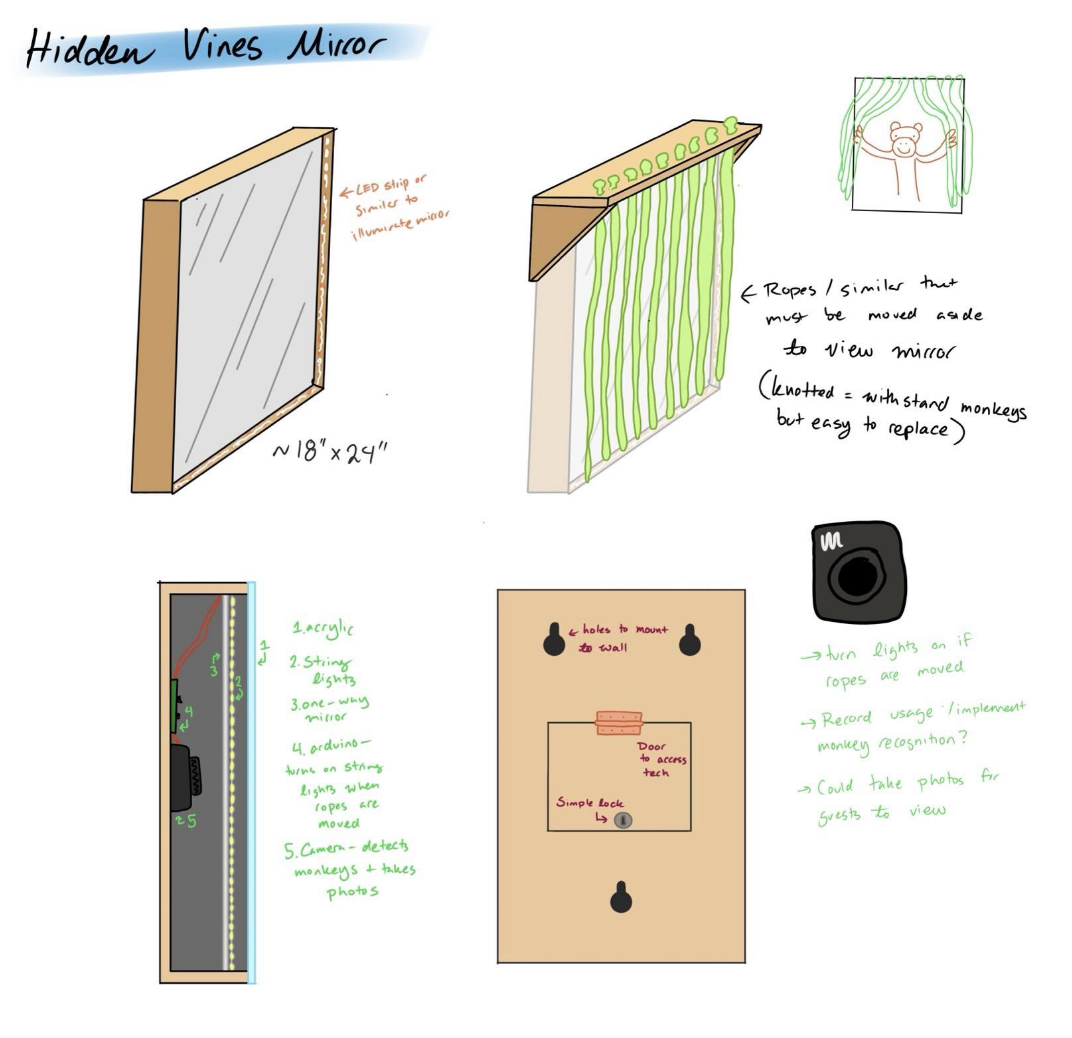 Hidden Vines Mirror
← LED strip or
similar to
illuminate mirror
~18" x 24"
← Ropes / similar that
must be moved aside
to view mirror
(knotted = withstand monkeys
but easy to replace)
1. acrylic
2. String
lights
3. one-way
mirror
4. arduino -
turns on string
lights when
ropes are
moved
5. Camera - detects
monkeys + takes
photos
1
2
3
4
5
← holes to mount
to wall
Door
to access
tech
Simple lock
m
→ turn lights on if
ropes are moved
→ Record usage / implement
monkey recognition?
→ Could take photos for
guests to view